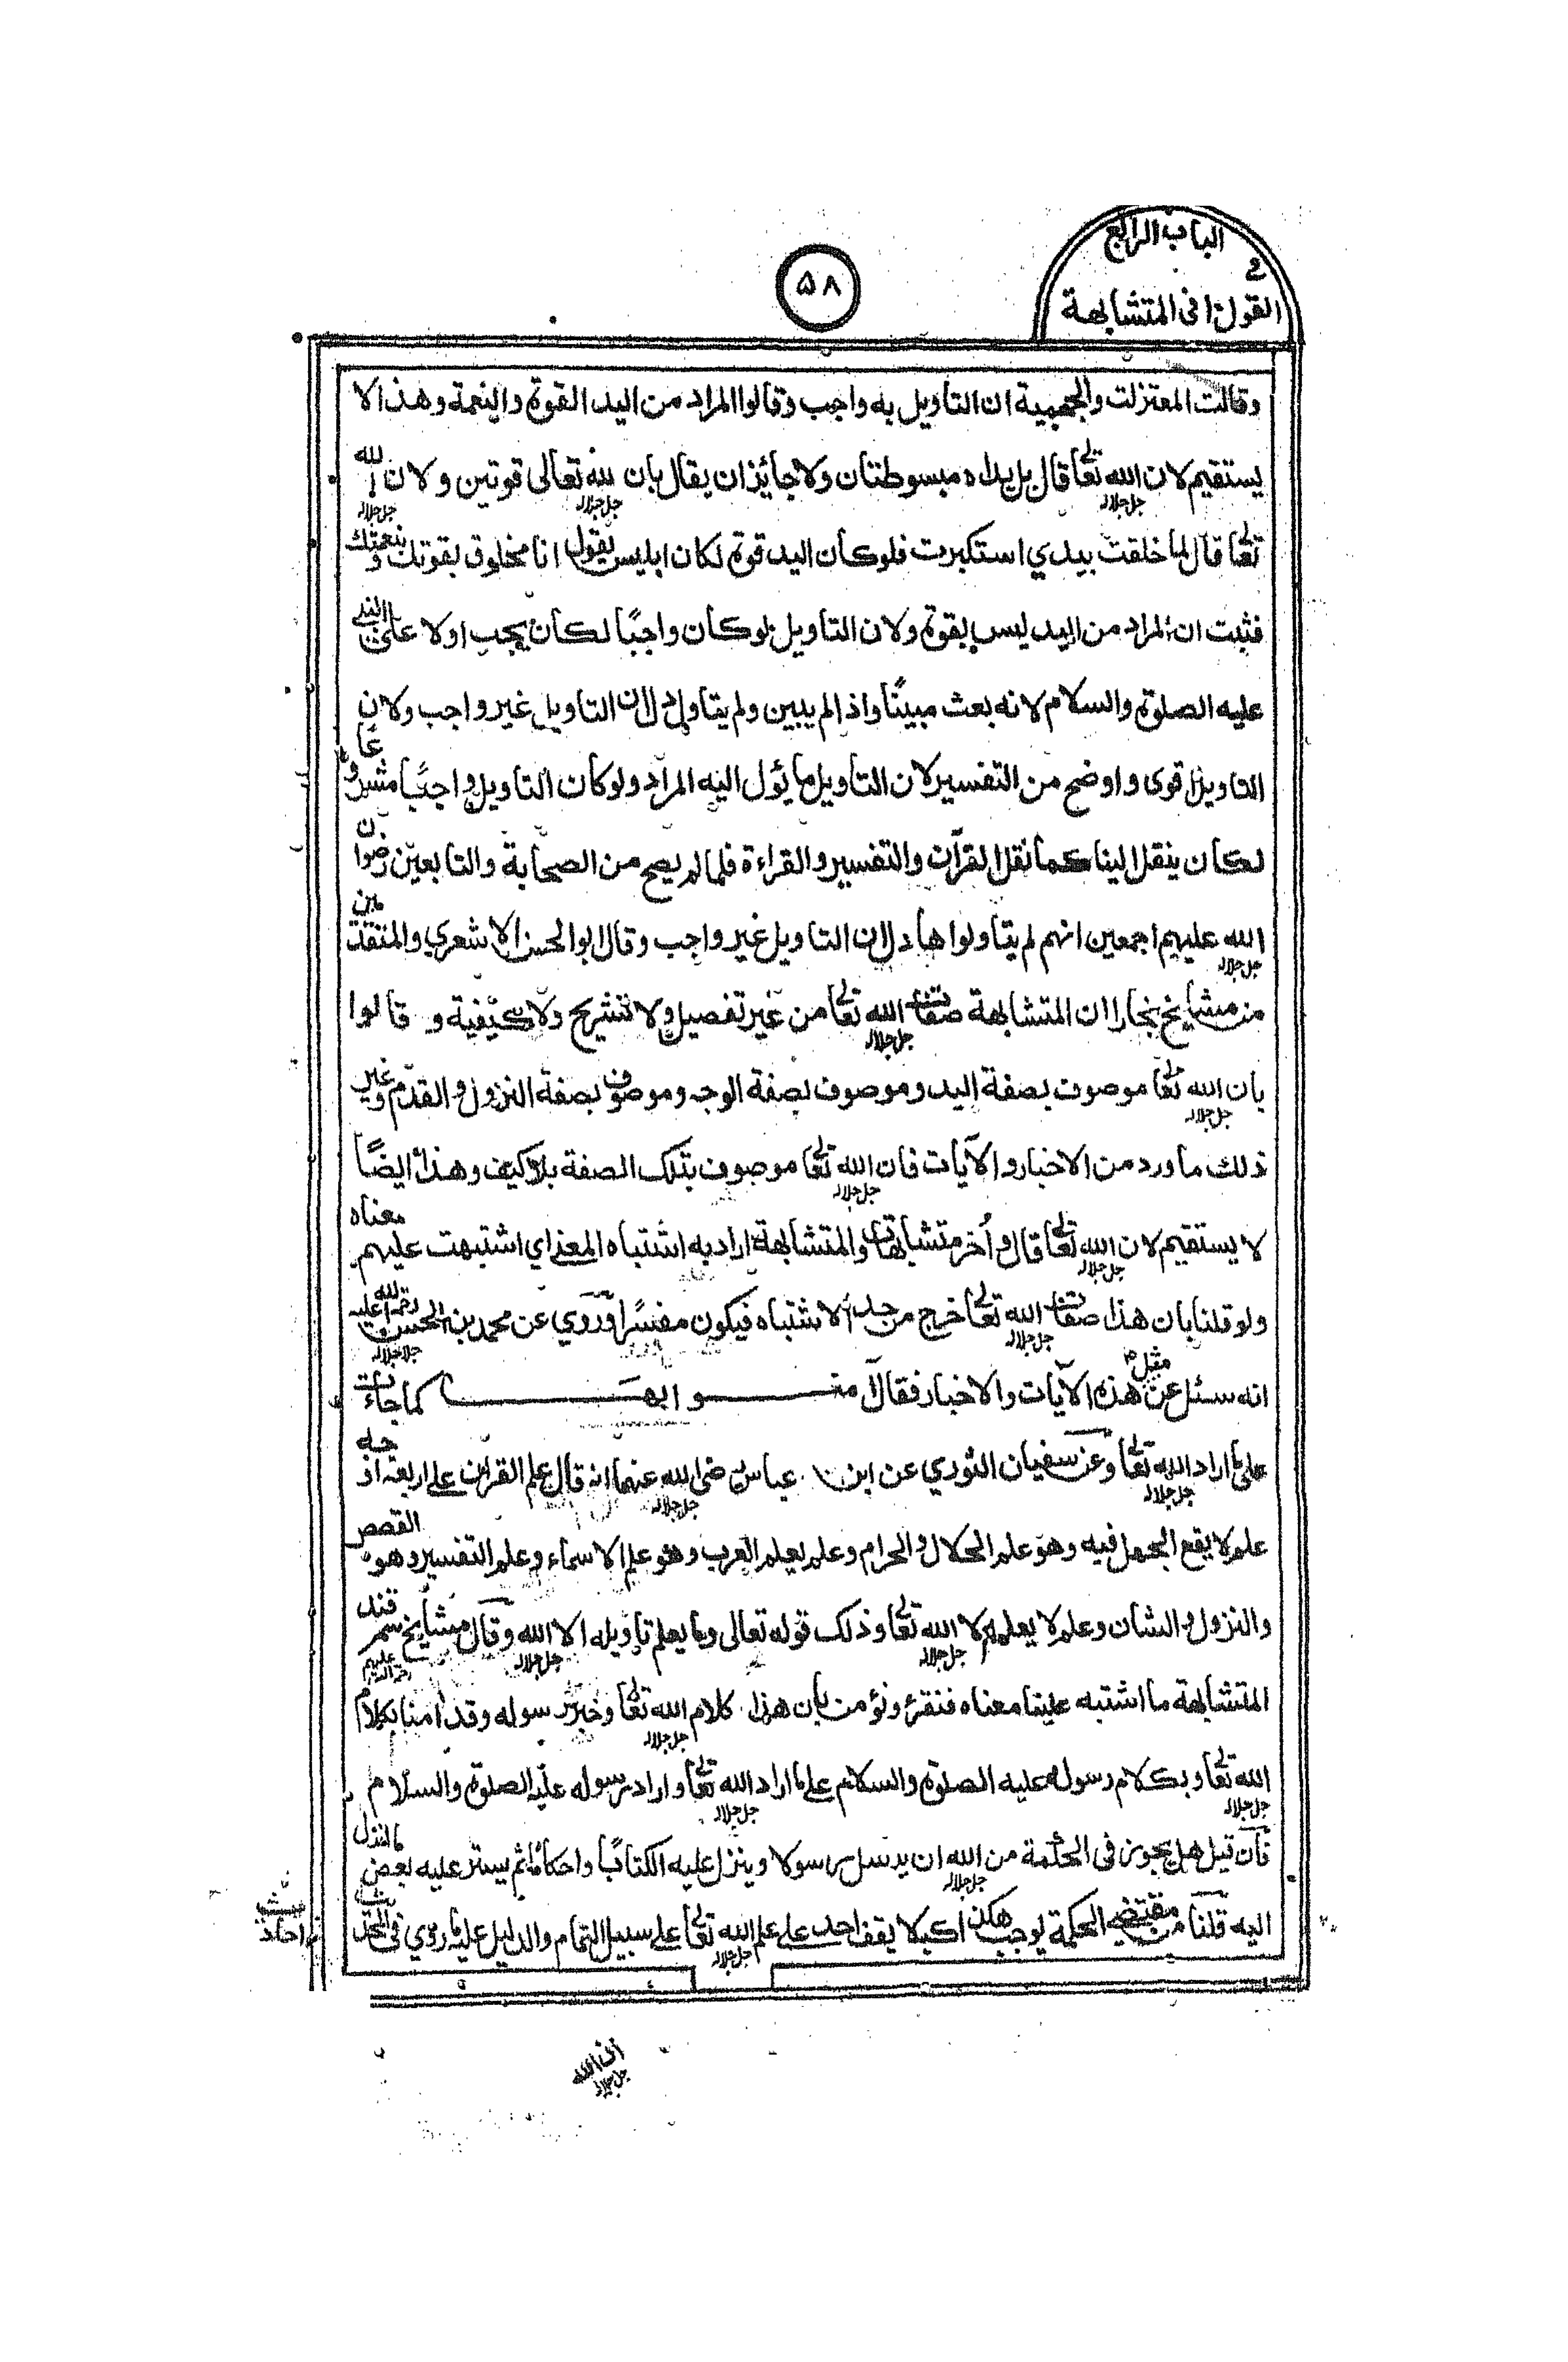 الباب الرابع
في
القول في المتشابهة
۵۸
وقالت المعتزلت والجهمية ان التاويل به واجب وقالوا المراد من اليد القوة والنعمة وهذا لا
يستقيم لان الله تعالى جل جلاله قال بل يداه مبسوطتان ولا جائز ان يقال بان لله تعالى جل جلاله قوتين ولان الله جل جلاله
تعالى قال لما خلقت بيدي استكبرت فلو كان اليد قوة لكان ابليس يقول انا مخلوق بقوتك ونعمتك
فثبت ان المراد من اليد ليس بقوة ولان التاويل لو كان واجبًا لكان يجب اولا على النبي
عليه الصلوة والسلام لانه بعث مبينًا واذا لم يبين ولم يتاول دل ان التاويل غير واجب ولان
التاويل اقوى واوضح من التفسير لان التاويل ما يؤل اليه المراد ولو كان التاويل واجبًا مشروعًا
لكان ينقل الينا كما نقل القرآن والتفسير والقراءة فلما لم يصح من الصحابة والتابعين رضوان
الله جل جلاله عليهم اجمعين انهم لم يتاولوا هاد دل ان التاويل غير واجب وقال ابو الحسن الاشعري والمتقدمين
من مشايخ بخارا ان المتشابهة صفات الله تعالى جل جلاله من غير تفصيل ولا تشريح ولا كيفية و قالوا
بان الله تعالى جل جلاله موصوف بصفة اليد وموصوف بصفة الوجه وموصوف بصفة النزول والقدم وغير
ذلك ما ورد من الاخبار والآيات فان الله تعالى جل جلاله موصوف بتلك الصفة بلا كيف وهذا ايضًا
لا يستقيم لان الله تعالى جل جلاله قال وأخر متشابهات والمتشابهة اراد به اشتباه المعنى اي اشتبهت عليهم معناه
ولو قلنا بان هذا صفات الله تعالى جل جلاله خرج من حد الاشتباه فيكون مفسرًا وروي عن محمد بن الحسن رحمة الله عليه جل جلاله
انه سئل عن مثل هذه الآيات والاخبار فقال آمنوا بها كما جاءت
على ما اراد الله تعالى جل جلاله وعن سفيان الثوري عن ابن عباس رضى الله جل جلاله عنهما انه قال علم القرآن على اربعة اوجه
علم لا يقع الجهل فيه وهو علم الحلال والحرام وعلم يعلم العرب وهو علم الاسماء وعلم التفسير وهو القصص
والنزول والشان وعلم لا يعلمه الا الله تعالى جل جلاله وذلك قوله تعالى وما يعلم تاويله الا الله جل جلاله وقال مشايخ سمرقند رحمة الله عليهم
المتشابهة ما اشتبه علينا معناه فنقرؤ ونؤمن بان هذا كلام الله تعالى جل جلاله وخبر رسوله وقد امنا بكلام
الله تعالى جل جلاله وبكلام رسوله عليه الصلوة والسلام على ما اراد الله تعالى جل جلاله واراد رسوله عليه الصلوة والسلام
فان قيل هل يجوز في الحكمة من الله جل جلاله ان يرسل رسولا وينزل عليه الكتابًا واحكامًا ثم يستر عليه بعض ما انزل
اليه قلنا من مقتضى الحكمة يوجب هكذا كيلا يقف احد على علم الله تعالى جل جلاله على سبيل التمام والدليل عليه ما روي في الحديث
ان الله
جل جلاله